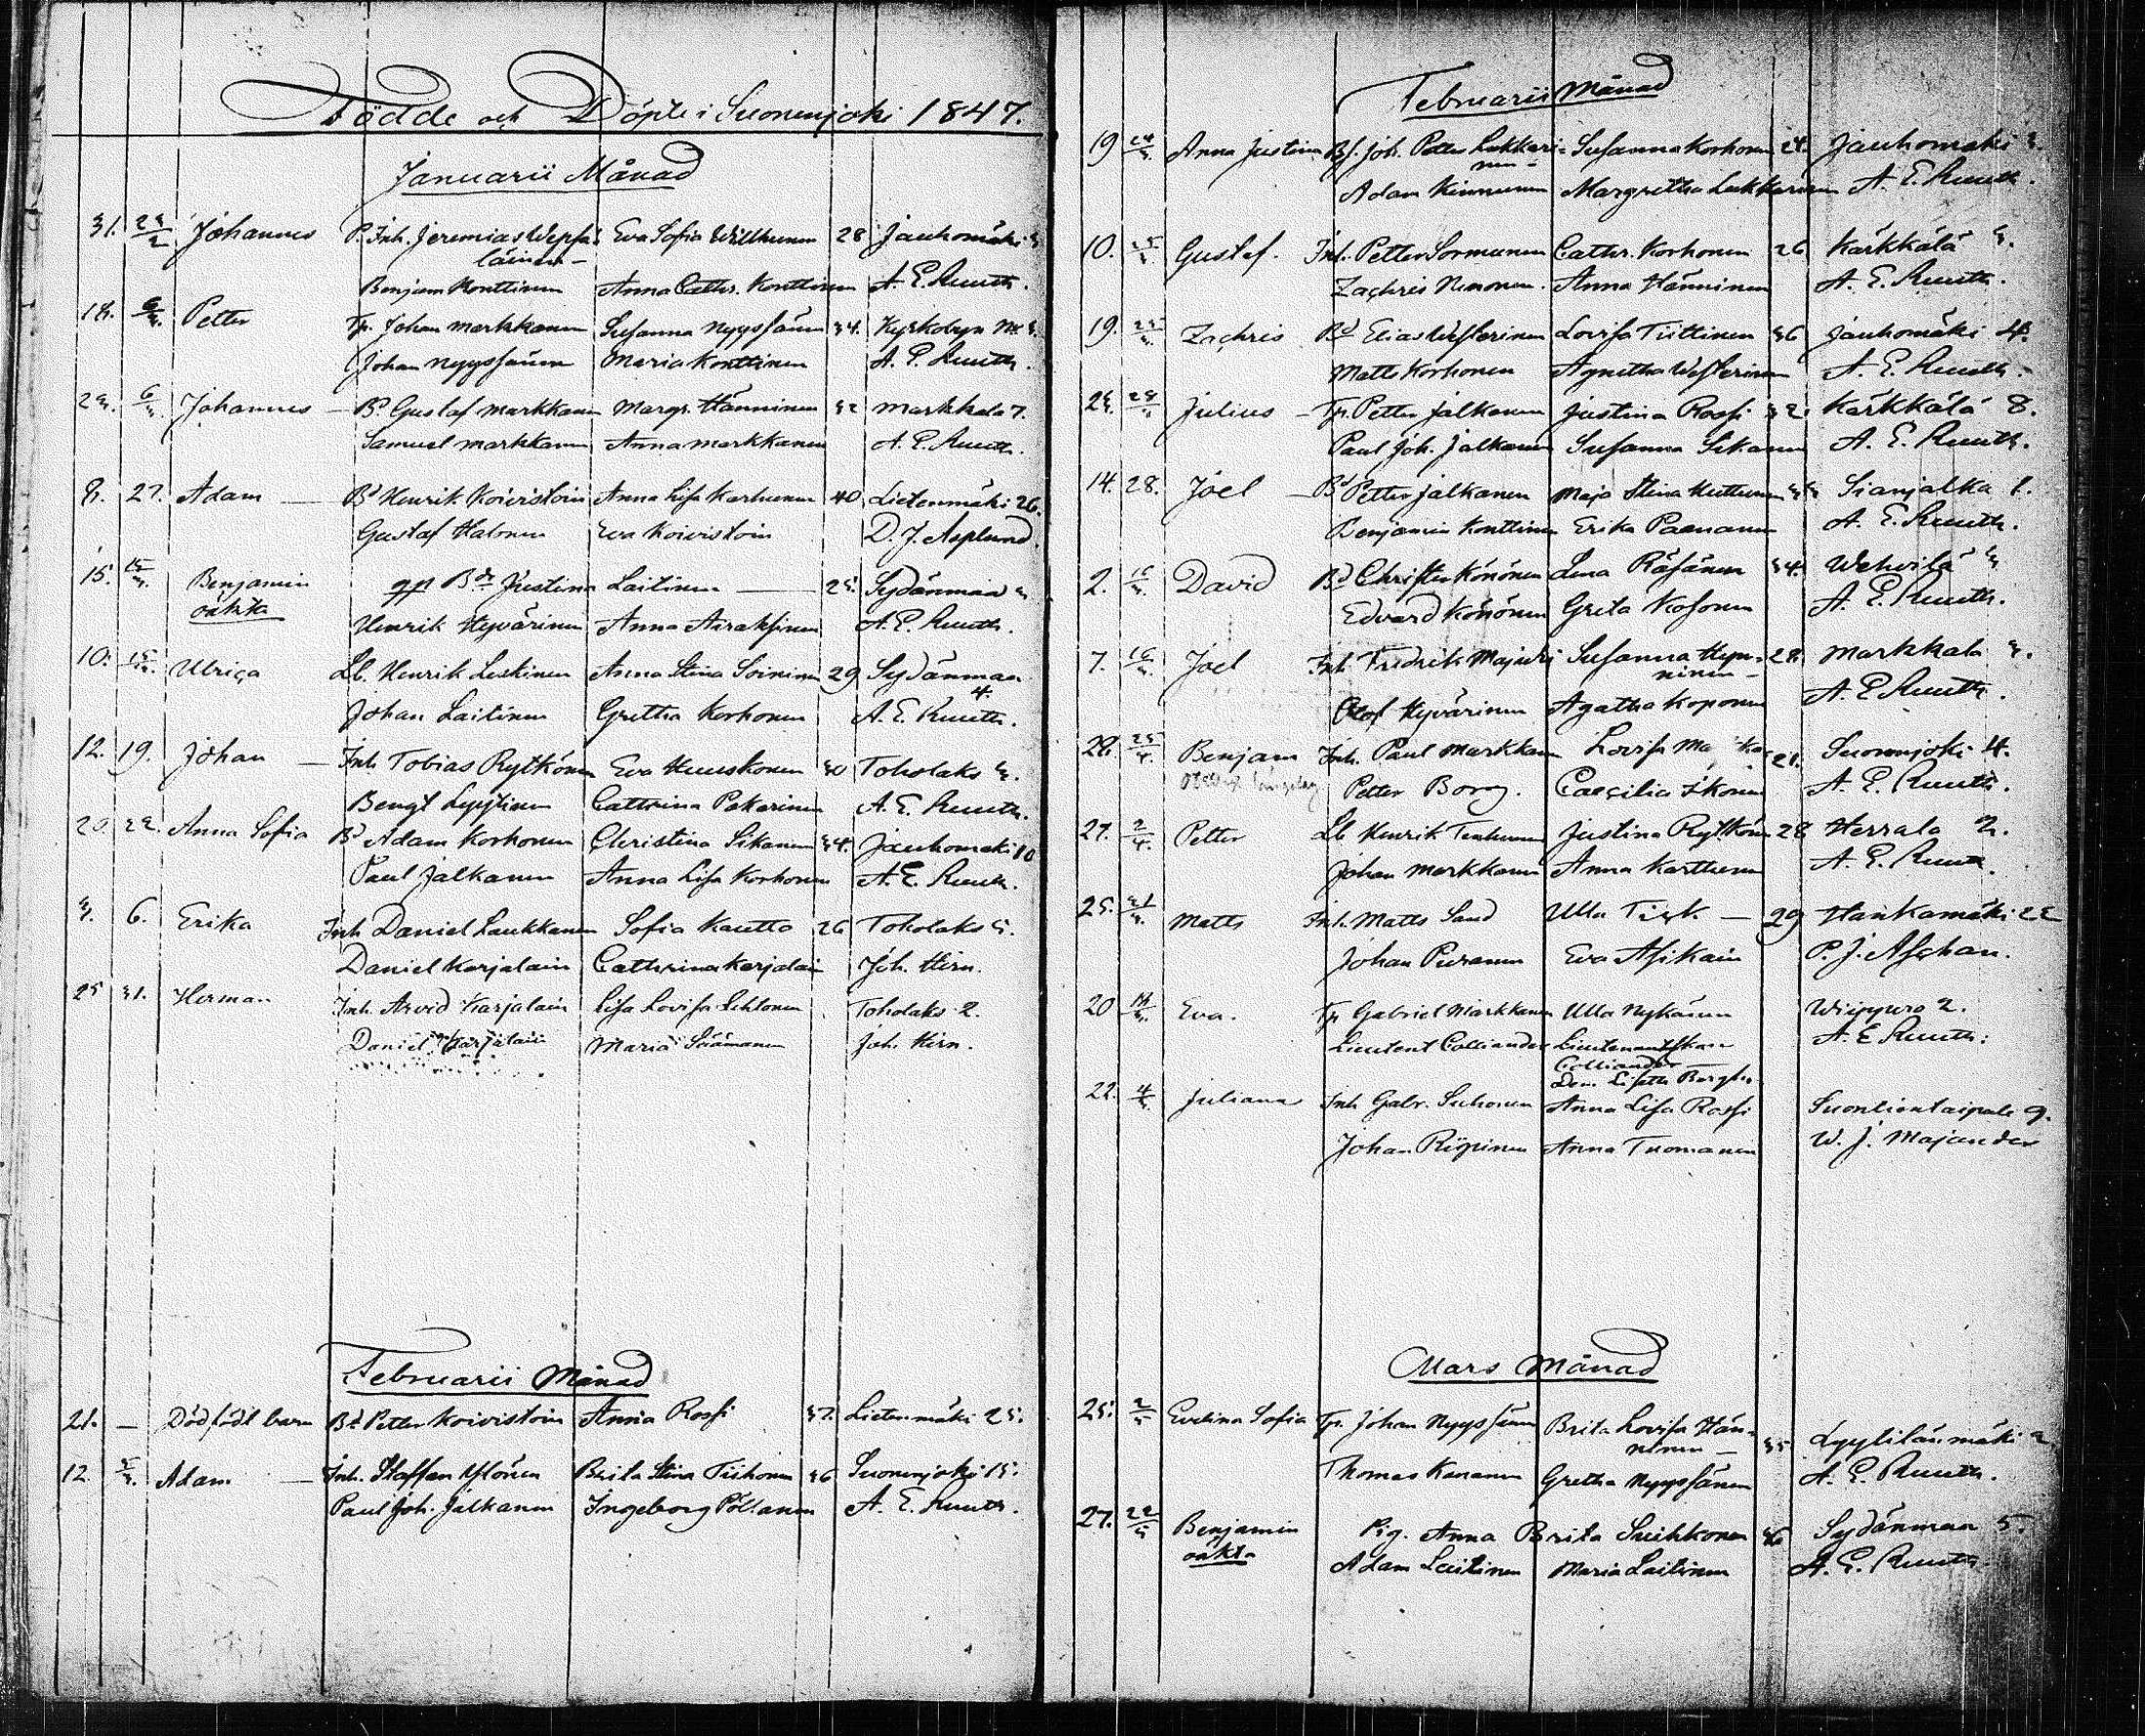 Födde och Döpte i Suonenjoki 1847.
Januarii Månad
31. 23/2 Johannes P. Inh. Jeremias Wepsä- Eva Sofia Willhunen 28 Jauhomäki 3
läinen -
Benjam Konttinen Anna Cathr. Konttinen A. E. Ruuth.
18. 6/3 Petter Tp. Johan Markkanen Susanna Nyyssönen 34. Kyrkobyn
Johan Nyyssönen Maria Konttinen A. E. Ruuth.
23. 6/3 Johannes - Bd Gustaf Markkanen Margr. Hänninen 32 Markkala 7.
Samuel Markkanen Anna Markkanen A. E. Ruuth.
8. 27. Adam - Bd Henrik Koivistoin Anna Lisa Karhunen 40 Lietenmäki 26.
Gustaf Halonen Eva Koivistoin D. J. Asplund.
15. Benjamin Bdr Justina Laitinen - 25. Sydänmaa 3
oäkta
Henrik Hyvärinen Anna Airaksinen A. E. Ruuth.
10. Ulrica Lb. Henrik Leskinen Anna Stina Soininen 29 Sydänmaa
4.
Johan Laitinen Gretha Korhonen A. E. Ruuth.
12. 19. Johan - Inh Tobias Rytkönen Eva Huuskonen 30 Toholaks 3.
Bengt Lyytinen Cathrina Pakarinen A. E. Ruuth.
20. 22. Anna Sofia Bd Adam Korhonen Christina Sikanen 34. Jauhomäki 10
Paul Jalkanen Anna Lisa Korhonen A. E. Ruuth.
3. 6. Erika Inh Daniel Laukkanen Sofia Kautto 26 Toholaks 5.
Daniel Karjalain Cathrina Karjalain Joh. Hirn.
25 31. Herman Inh. Arvid Karjalain Lisa Lovisa Lehtonen Toholaks 2.
Daniel Karjalain Maria Säämänen Joh. Hirn.
Februarii Månad
21. - Dödfödt barn Bd. Petter Koivistoin Anna Rossi 37. Lietenmäki 25.
12 Adam - Inh. Staffan Ylönen Brita Stina Tiihonen 36 Suonenjoki 15.
Paul Joh. Jalkanen Ingeborg Pöllänen A. E. Ruuth.
Februarii Månad
19 Anna Justina Joh. Petter Lukkari- Susanna Korhonen 24. Jauhomäki 3.
nen -
Adam Kinnunen Margretha Lukkarinen A. E. Ruuth.
10. Gustaf. Inh. Petter Sormunen Cathr. Korhonen 26 Kärkkälä 3.
Zachris Nenonen. Anna Hänninen A. E. Ruuth.
19. Zachris Bd Elias Westerinen Lovisa Tiittinen 36 Jauhomäki 4.
Matts Korhonen Agnetha Westerinen A. E. Ruuth.
Julius - Tp. Petter Jalkanen Justina Rossi 32. Kärkkälä 8.
Paul Joh. Jalkanen Susanna Sikanen A. E. Ruuth.
14. 28. Joel - Bd Petter Jalkanen Maja Stina Huttunen Sianjalka 1.
Benjamin Konttinen Erika Paananen A. E. Ruuth.
2. David Bd Christer Könönen Lena Räsänen 34. Wehvilä 3
Edvard Könönen Greta Kosonen A. E. Ruuth.
7. 16/3 Joel Inh Fredrik Majuri Susanna Hyn- 28. Markkala 3.
ninen -
Olof Hyvärinen Agatha Koponen A. E. Ruuth.
Benjam Inh. Paul Markkanen Lovisa 21. Suonenjoki 4.
Petter Borg. Caecilia Ikonen A. E. Ruuth.
27. 2/4. Petter Lb Henrik Tenhunen Justina Rytkönen 28 Herrala 2.
Johan Markkanen Anna Karhunen A. E. Ruuth.
25. Matts Inh. Matts Sand Ulla Tisk. - 29 Hankamäki 22
Johan Puranen Eva Asikain P. J. Aschan.
20 Eva. Tp Gabriel Markkanen Ulla Nykänen Wiippuro 2.
Lieutent Colliander Lieutenantskan A. E. Ruuth.
Colliander
Dem. Liseth
22. 4/3. Juliana Inh Gabr. Suhonen Anna Lisa Rossi Suontientaipale 9.
Johan Riipinen Anna Tuomainen W. J. Majander
Mars Månad
25. Evelina Sofia Tp. Johan Nyyssönen Brita Lovisa Hän-
ninen - 35 Lyytilänmäki 2
Thomas Kananen Gretha Nyyssönen A. E. Ruuth.
27. 22/5 Benjamin Pig. Anna Brita Suihkonen 36 Sydänmaa 5.
oäkta
Adam Laitinen Maria Laitinen A. E. Ruuth.